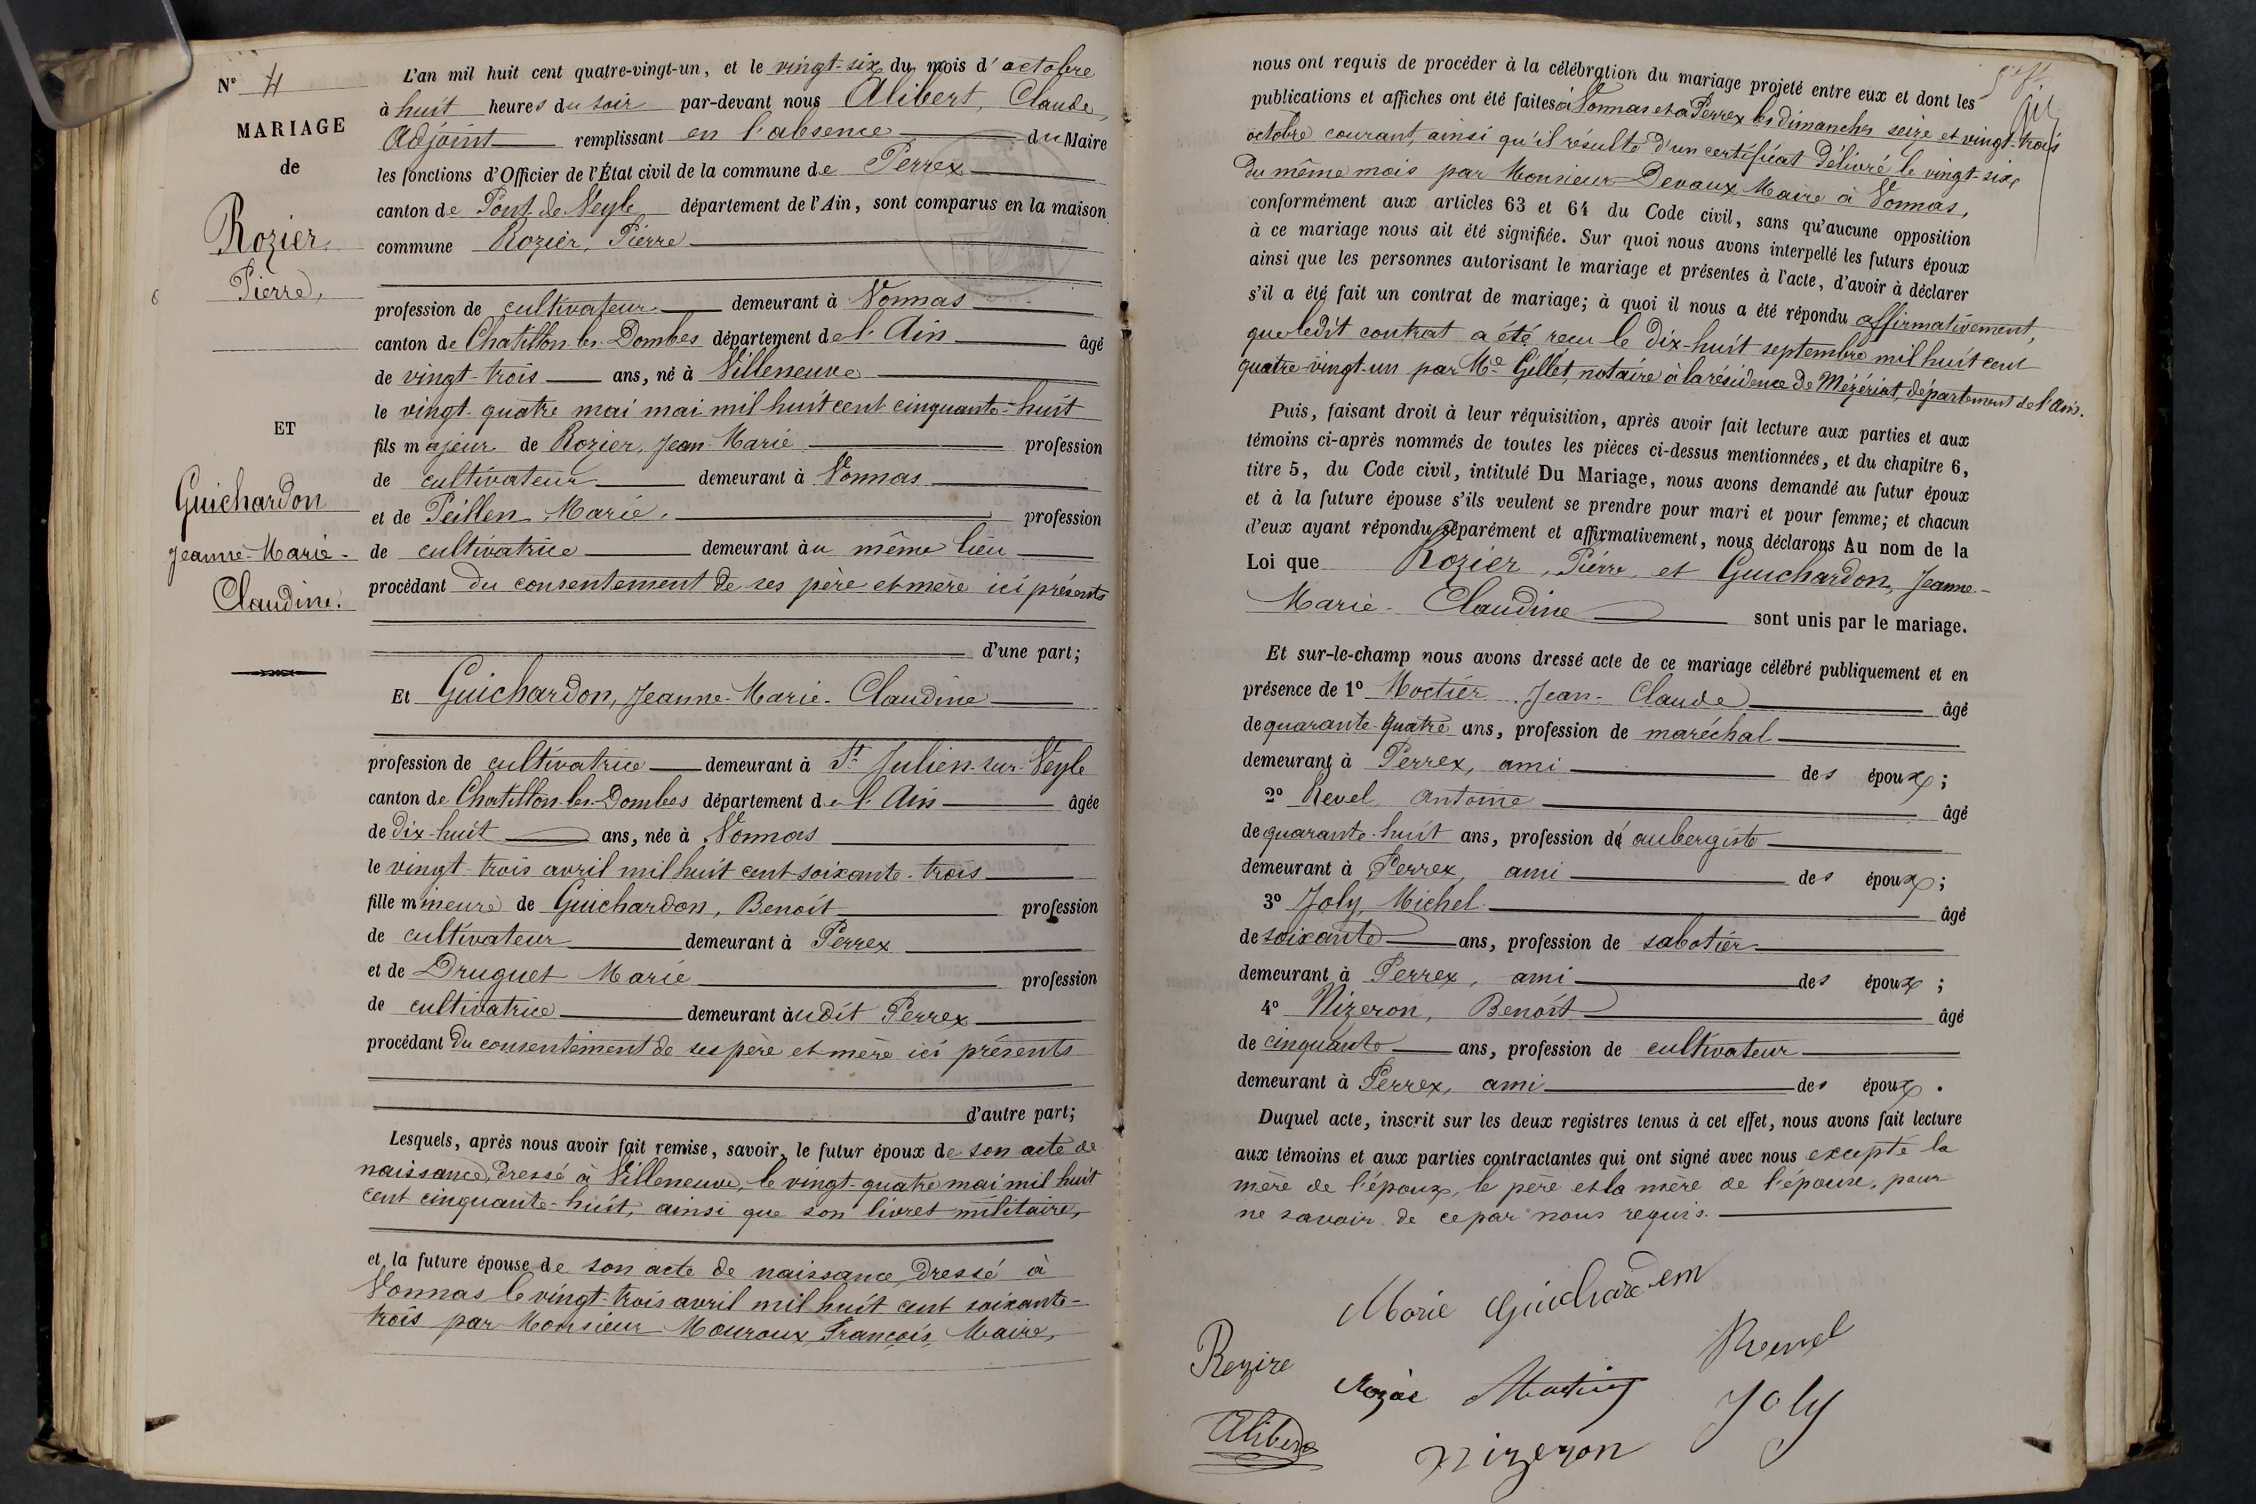 N° 4
MARIAGE
de
Rozier,
Pierre,
ET
Guichardon
Jeanne-Marie-
Claudine.
L'an mil huit cent quatre-vingt-un, et le vingt-six du mois d'octobre
à huit heures du soir par-devant nous Alibert, Claude,
Adjoint remplissant en l'absence du Maire
les fonctions d'Officier de l'État civil de la commune de Perrex
canton de Pont-de-Veyle département de l'Ain, sont comparus en la maison
commune Rozier, Pierre
profession de cultivateur demeurant à Vonnas
canton de Chatillon-les-Dombes département de l'Ain âgé
de vingt-trois ans, né à Villeneuve
le vingt-quatre mai mai mil huit cent cinquante-huit
fils majeur de Rozier, Jean-Marie profession
de cultivateur demeurant à Vonnas
et de Peillen, Marie, profession
de cultivatrice demeurant au même lieu
procédant du consentement de ses père et mère ici présents
d'une part;
Et Guichardon, Jeanne-Marie-Claudine
profession de cultivatrice demeurant à St Julien-sur-Veyle
canton de Chatillon-les-Dombes département de l'Ain âgée
de dix-huit ans, née à Vonnas
le vingt-trois avril mil huit cent soixante-trois
fille mineure de Guichardon, Benoît profession
de cultivateur demeurant à Perrex
et de Druguet Marie profession
de cultivatrice demeurant audit Perrex
procédant du consentement de ses père et mère ici présents
d'autre part;
Lesquels, après nous avoir fait remise, savoir, le futur époux de son acte de
naissance, dressé à Villeneuve, le vingt-quatre mai mil huit
cent cinquante-huit, ainsi que son livret militaire,
et la future épouse de son acte de naissance, dressé à
Vonnas le vingt-trois avril mil huit cent soixante-
trois par Monsieur Mouroux, François, Maire,
nous ont requis de procéder à la célébration du mariage projeté entre eux et dont les
publications et affiches ont été faites à Vonnas et à Perrex les dimanches seize et vingt-trois
octobre courant, ainsi qu'il résulte d'un certificat délivré le vingt-six
du même mois par Monsieur Devaux Maire à Vonnas,
conformément aux articles 63 et 64 du Code civil, sans qu'aucune opposition
à ce mariage nous ait été signifiée. Sur quoi nous avons interpellé les futurs époux
ainsi que les personnes autorisant le mariage et présentes à l'acte, d'avoir à déclarer
s'il a été fait un contrat de mariage; à quoi il nous a été répondu affirmativement,
que ledit contrat a été reçu le dix-huit septembre mil huit cent
quatre-vingt-un par Me Gillet, notaire à la résidence de Mézériat, département de l'Ain.
Puis, faisant droit à leur réquisition, après avoir fait lecture aux parties et aux
témoins ci-après nommés de toutes les pièces ci-dessus mentionnées, et du chapitre 6,
titre 5, du Code civil, intitulé Du Mariage, nous avons demandé au futur époux
et à la future épouse s'ils veulent se prendre pour mari et pour femme; et chacun
d'eux ayant répondu séparément et affirmativement, nous déclarons Au nom de la
Loi que Rozier, Pierre, et Guichardon, Jeanne-
Marie-Claudine sont unis par le mariage.
Et sur-le-champ nous avons dressé acte de ce mariage célébré publiquement et en
présence de 1° Moctier, Jean-Claude âgé
de quarante-quatre ans, profession de maréchal
demeurant à Perrex, ami des époux;
2° Revel Antoine âgé
de quarante-huit ans, profession d'aubergiste
demeurant à Perrex, ami des époux;
3° Joly, Michel âgé
de soixante ans, profession de sabotier
demeurant à Perrex, ami des époux;
4° Nizeron, Benoît âgé
de cinquante ans, profession de cultivateur
demeurant à Perrex, ami des époux.
Duquel acte, inscrit sur les deux registres tenus à cet effet, nous avons fait lecture
aux témoins et aux parties contractantes qui ont signé avec nous excepté la
mère de l'époux, le père et la mère de l'épouse, pour
ne savoir de ce par nous requis.
Marie Guichardon
Revel
Rozier
Joly
Alibert
Nizeron